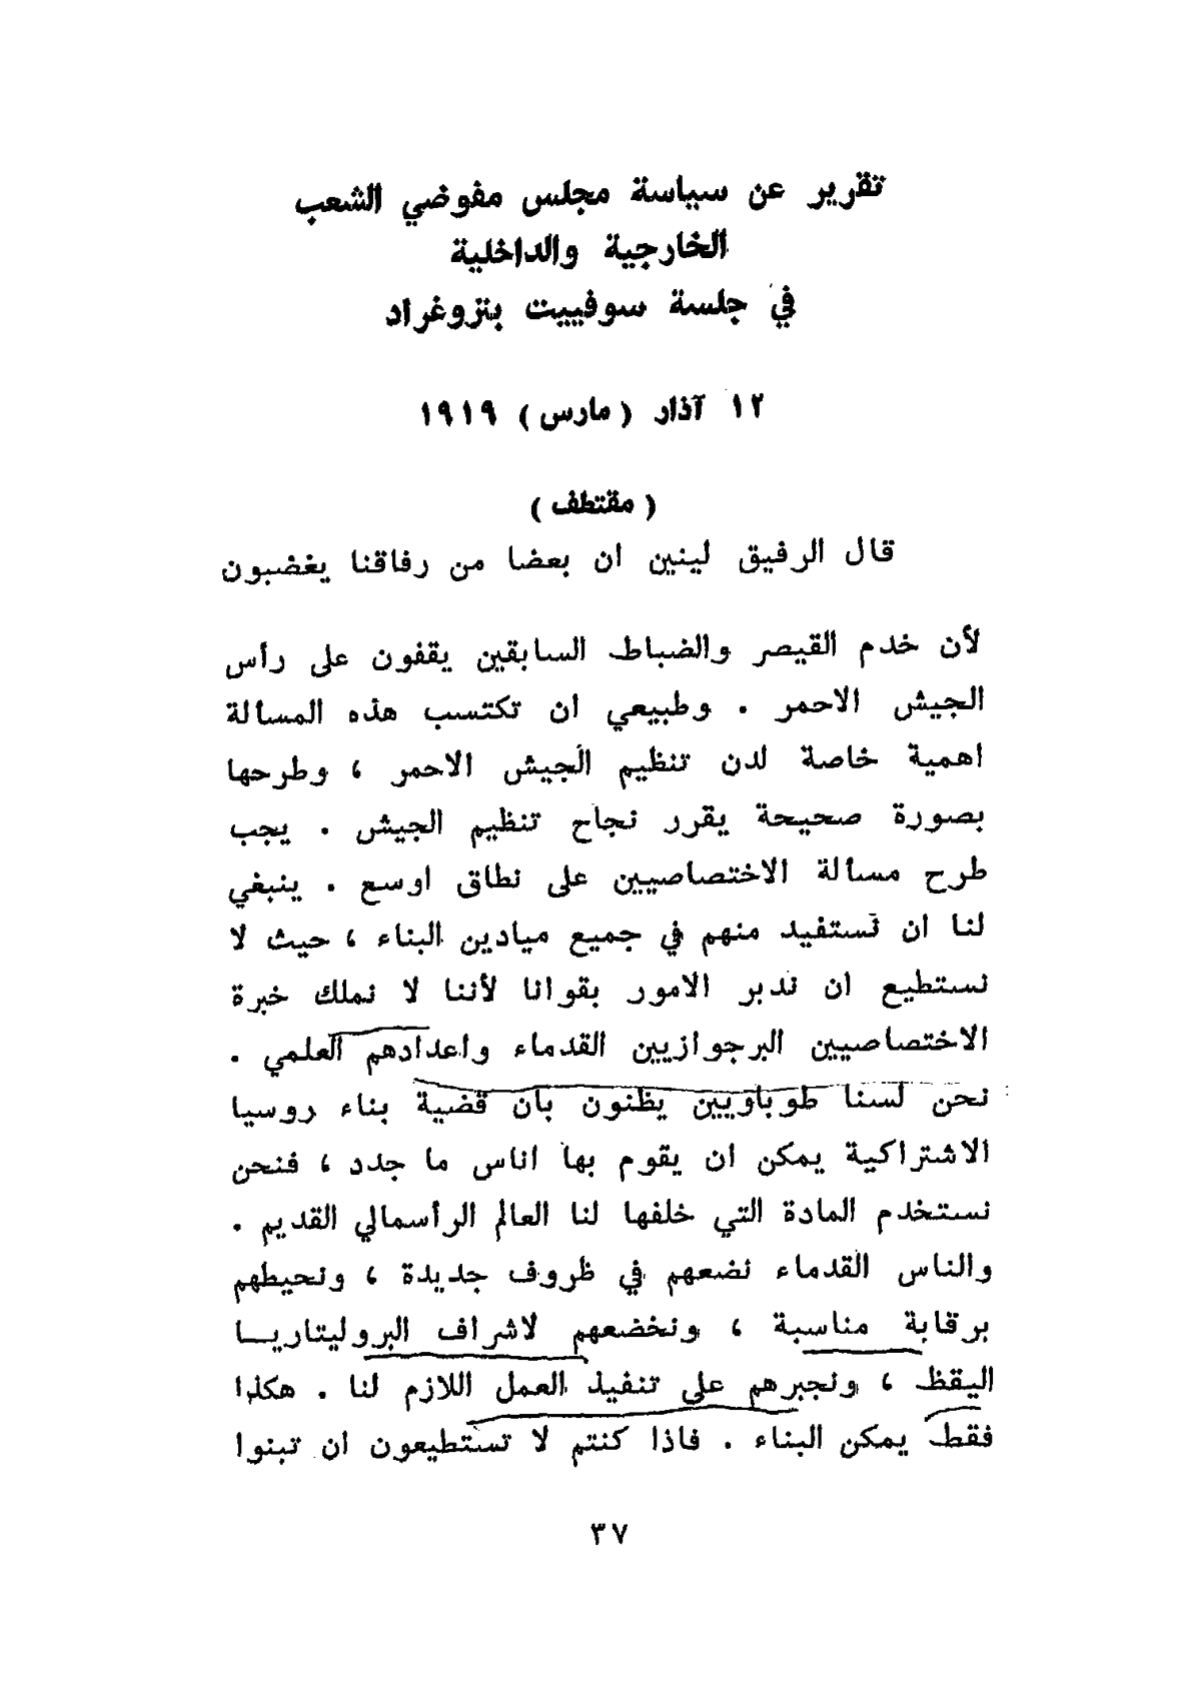 تقرير عن سياسة مجلس مفوضي الشعب
الخارجية والداخلية
في جلسة سوفييت بتروغراد
١٢ آذار ( مارس ) ١٩١٩
( مقتطف )
قال الرفيق لينين ان بعضا من رفاقنا يغضبون
لأن خدم القيصر والضباط السابقين يقفون على رأس
الجيش الاحمر . وطبيعي ان تكتسب هذه المسألة
اهمية خاصة لدن تنظيم الجيش الاحمر ، وطرحها
بصورة صحيحة يقرر نجاح تنظيم الجيش . يجب
طرح مسألة الاختصاصيين على نطاق اوسع . ينبغي
لنا ان نستفيد منهم في جميع ميادين البناء ، حيث لا
نستطيع ان ندبر الامور بقوانا لأننا لا نملك خبرة
الاختصاصيين البرجوازيين القدماء واعدادهم العلمي .
نحن لسنا طوباويين يظنون بأن قضية بناء روسيا
الاشتراكية يمكن ان يقوم بها اناس ما جدد ، فنحن
نستخدم المادة التي خلفها لنا العالم الرأسمالي القديم .
والناس القدماء نضعهم في ظروف جديدة ، ونحيطهم
برقابة مناسبة ، ونخضعهم لاشراف البروليتاريـــا
اليقظ ، ونجبرهم على تنفيذ العمل اللازم لنا . هكذا
فقط يمكن البناء . فاذا كنتم لا تستطيعون ان تبنوا
٣٧